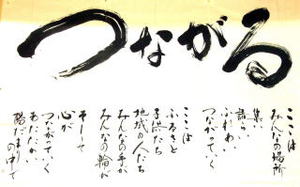 つながる
ここは
みんなの場所
集い
語らい
ふれあい
つながっていく
ここは
ふるさと
子供たち
地域の人たち
みんなの手が
みんなの輪が
そして
心が
つながっていく
あたたかい
陽だまりの中で